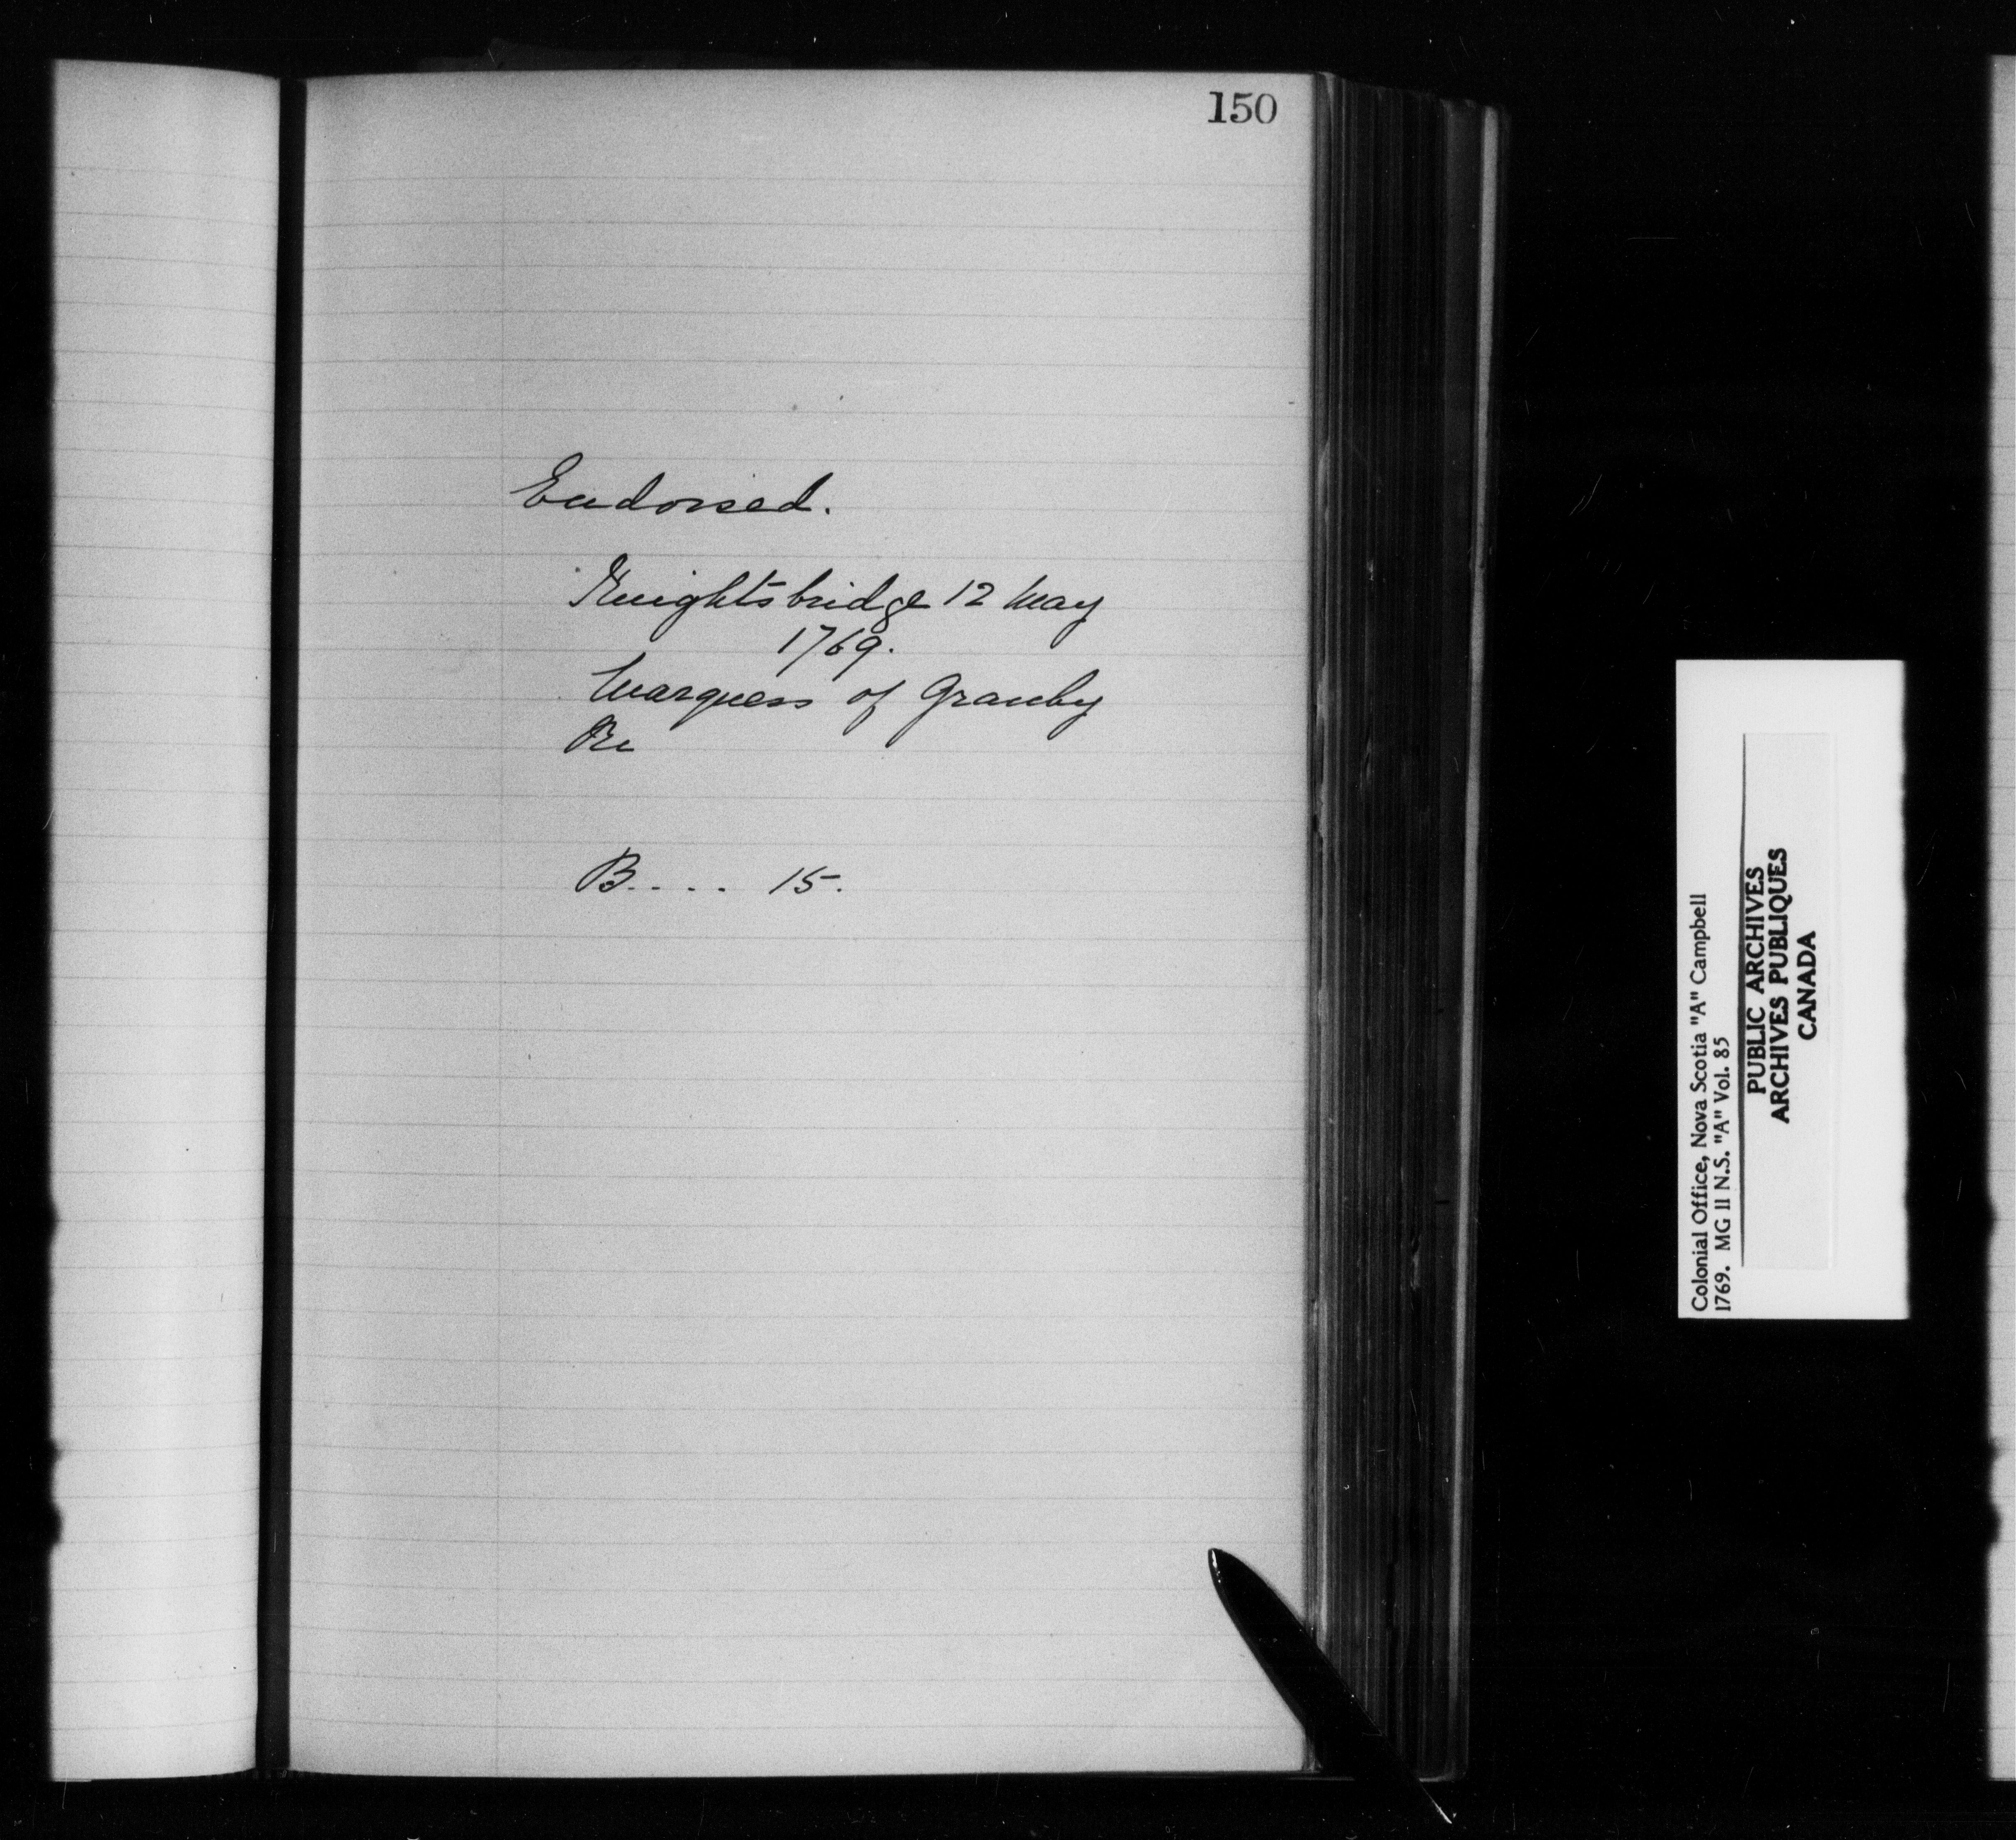 150
Endorsed.
Knightsbridge 12 May
1769.
Marquess of Granby
Re
B.... 15.
Colonial Office, Nova Scotia "A" Campbell
1769. MG 11 N.S. "A" Vol. 85
PUBLIC ARCHIVES
ARCHIVES PUBLIQUES
CANADA